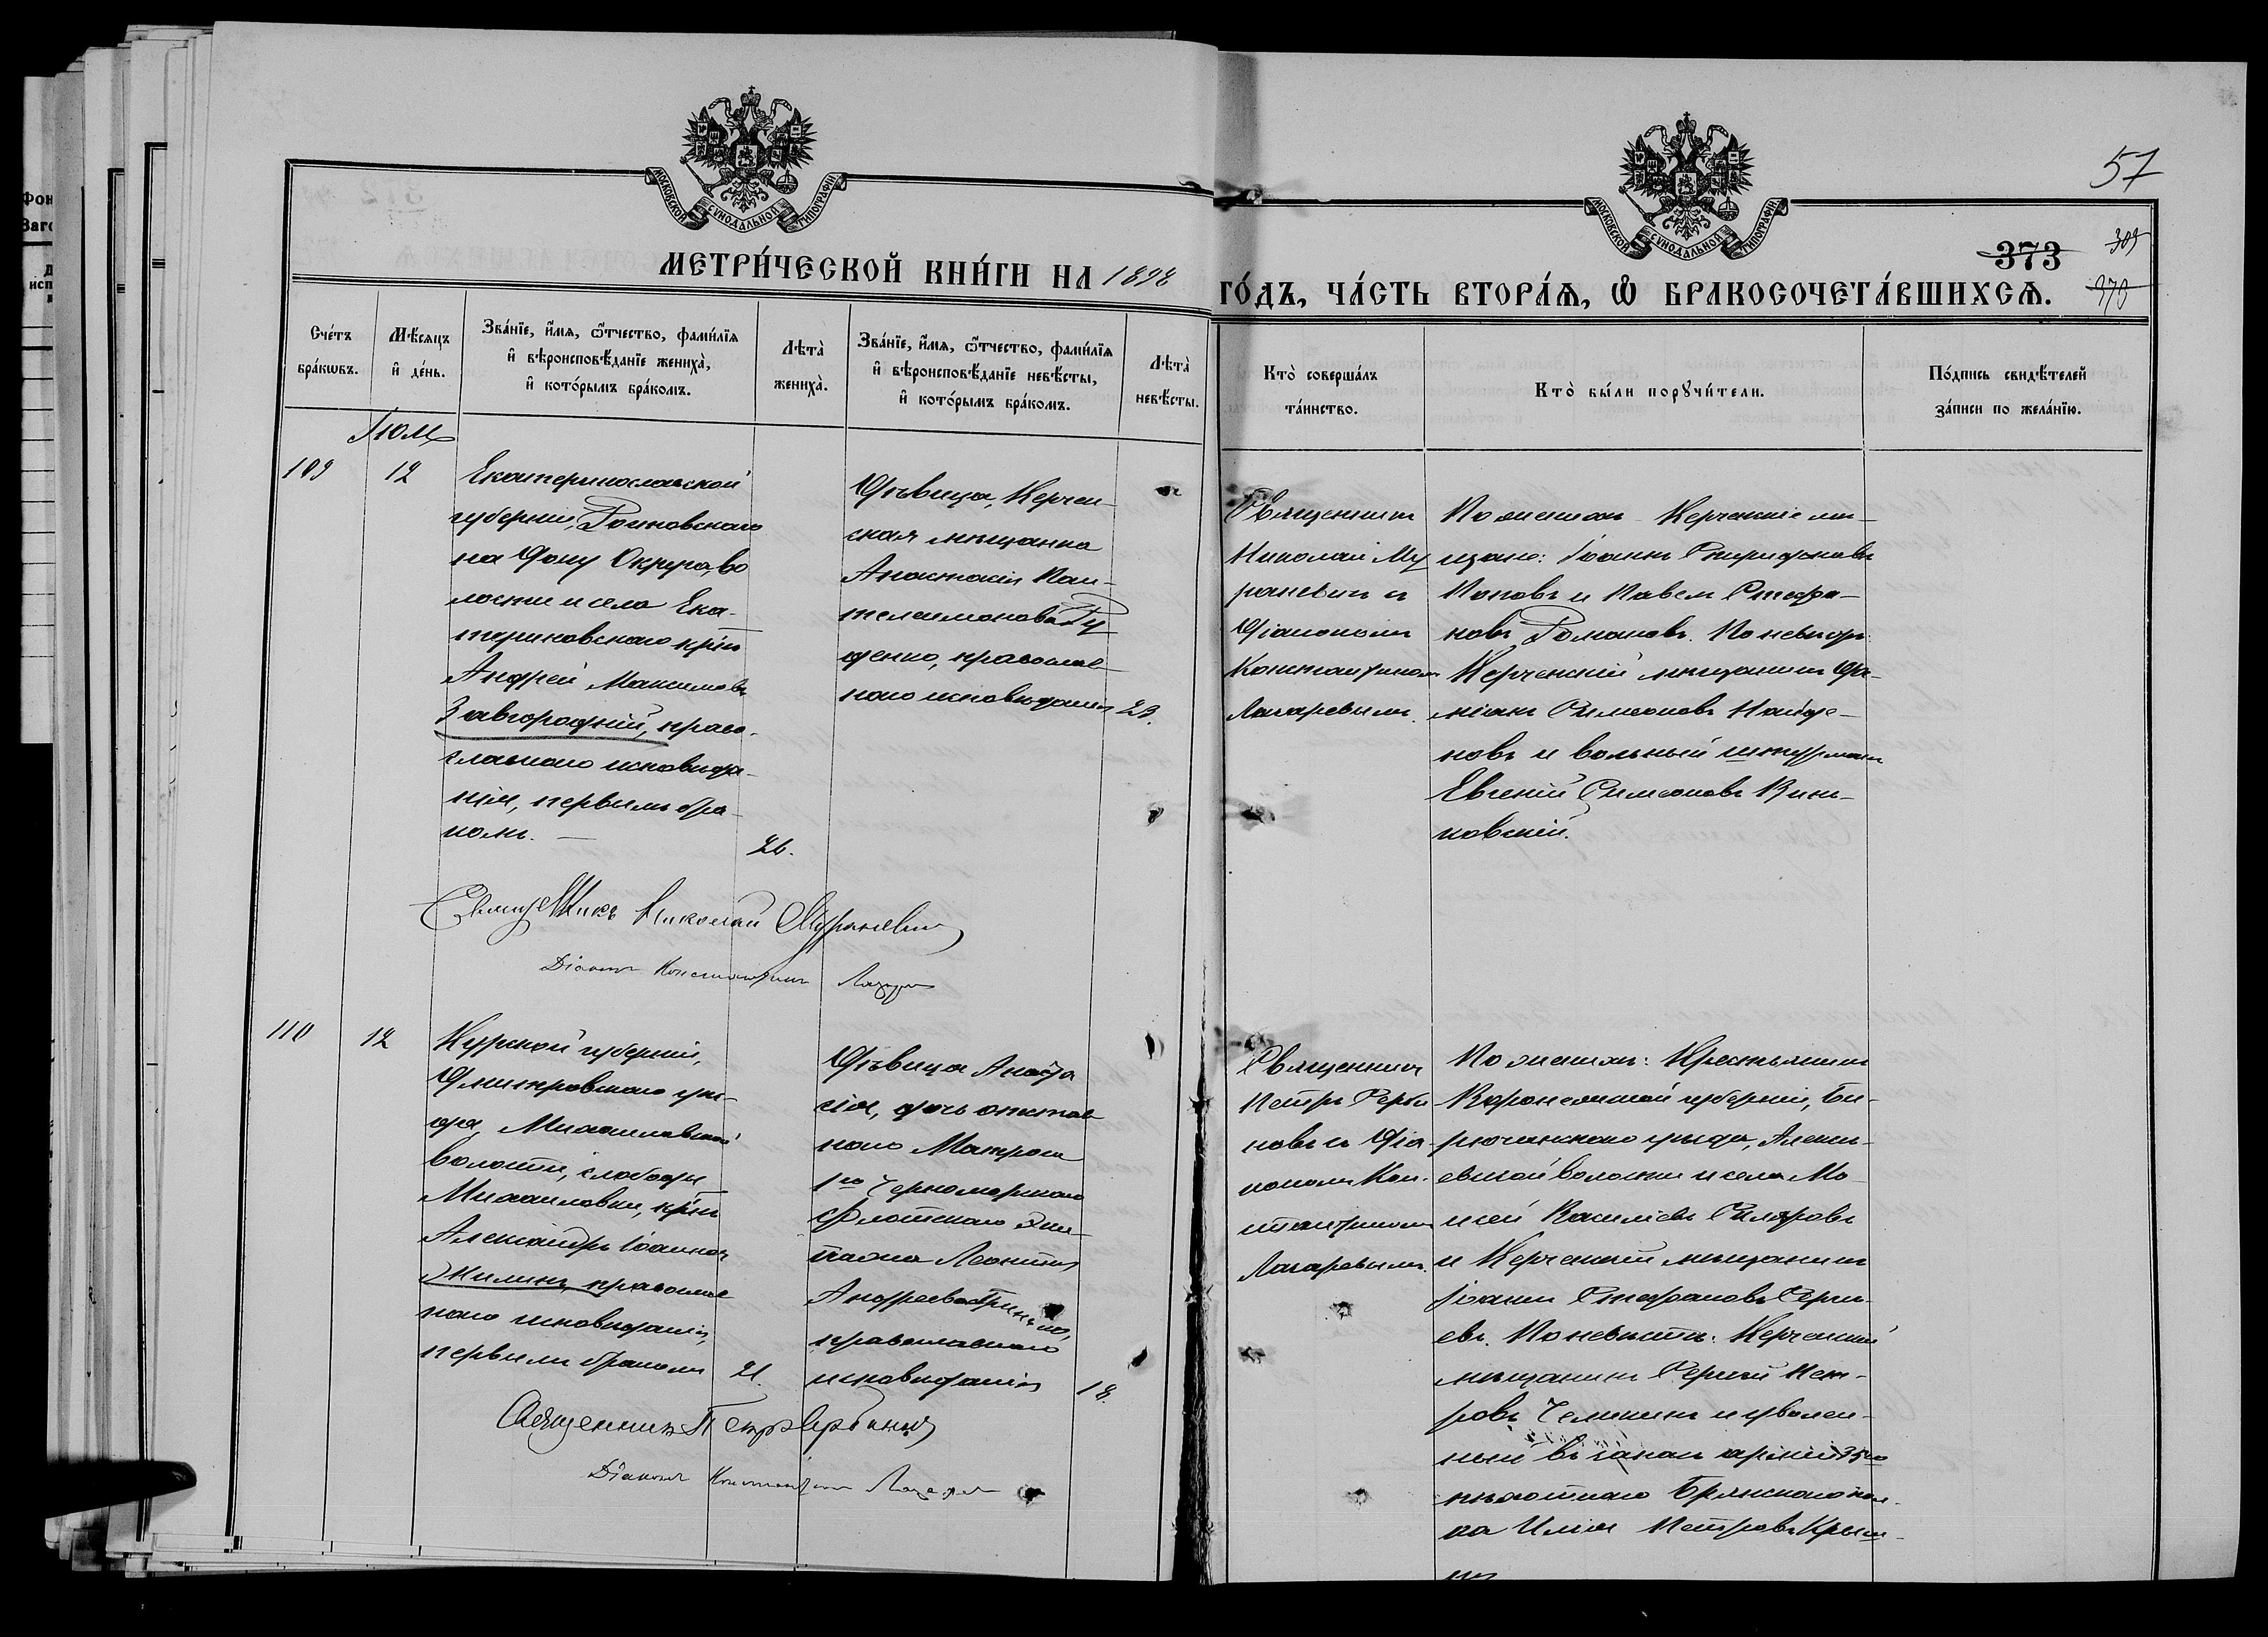 57
373
309
370
МОСКОВСКОЙ СУНОДАЛЬНОЙ ТИПОГРАФІИ
МОСКОВСКОЙ СУНОДАЛЬНОЙ ТИПОГРАФІИ
МЕТРИ́ЧЕСКОЙ КНИ́ГИ НА 1898
ГО́ДЪ, ЧА́СТЬ ВТОРА́Ѧ, Ѽ БРАКОСОЧЕТА́ВШИХСѦ.
Сче́тъ
бра́кѡвъ.
Мѣ́сяцъ
и҆ де́нь.
Зва́нїе, и҆́мѧ, ѻ҆́тчество, фами́лїѧ
и҆ вѣроисповѣ́данїе жениха̀,
и҆ кото́рымъ бра́комъ.
Лѣта̀
жениха̀.
Зва́нїе, и҆́мѧ, ѻ҆́тчество, фами́лїѧ
и҆ вѣроисповѣ́данїе невѣ́сты,
и҆ кото́рымъ бра́комъ.
Лѣта̀
невѣ́сты.
Кто̀ соверша́лъ
та́инство.
Кто̀ бы́ли порꙋчи́тели.
По́дпись свидѣ́телей
за́писи по жела́нїю.
109
12
Екатеринославской
губерніи, Ростовскаго
на Дону Округа, во
лости и села Ека-
териновскаго кр-нъ
Андрей Максимовъ
Завгородній, право-
славнаго исповѣда-
нія, первымъ бра-
комъ.
26.
Дѣвица, Керчен-
ская мѣщанка
Анастасія Пан-
телеимонова Ру
денко, православ-
наго исповѣданія
23.
Священникъ
Николай Му
раневич и
Діаконъ
Константиномъ
Лазаревымъ.
По женихѣ Керченскіе мѣ-
щане: Іоаннъ Спиридоновъ
Поповъ и Павелъ Стефа-
новъ Романовъ. По невѣстѣ
Керченскій мѣщанинъ Да-
міанъ Симеоновъ Найде-
новъ и вольный штурманъ
Евгеній Симеоновъ
Священникъ Николай Мураневич
Діаконъ Константинъ Лазарев
110
12
Курской губерніи,
Дмитровскаго уѣз-
да, Михаиловской
волости, слободы
Михаиловки, кр-нъ
Александръ Іоанновъ
Жилинъ, православ
наго исповѣданія,
первымъ бракомъ
21.
Дѣвица Анаста
сія, дочь отстав
наго Матроса
1го Черноморскаго
Флотскаго Эки-
пажа Леонтія
Андреева
православнаго
исповѣданія
18.
Священникъ
Петръ Серби
новъ и Діа
кономъ Кон-
стантиномъ
Лазаревымъ.
По женихѣ: Крестьянинъ
Воронежской губерніи, Би-
рюченскаго уѣзда, Алексѣ-
евской волости и села Мо-
исей Василіевъ
и Керченскій мѣщанинъ
Іоаннъ Стефановъ Серги-
евъ. По невѣстѣ: Керченскій
мѣщанинъ Сергій Пет-
ровъ и уволен-
ный въ запасъ арміи 35го
пѣхотнаго Брянскаго пол-
ка Илія Петровъ
Священникъ Петръ Сербиновъ
Діаконъ Константинъ Лазарев